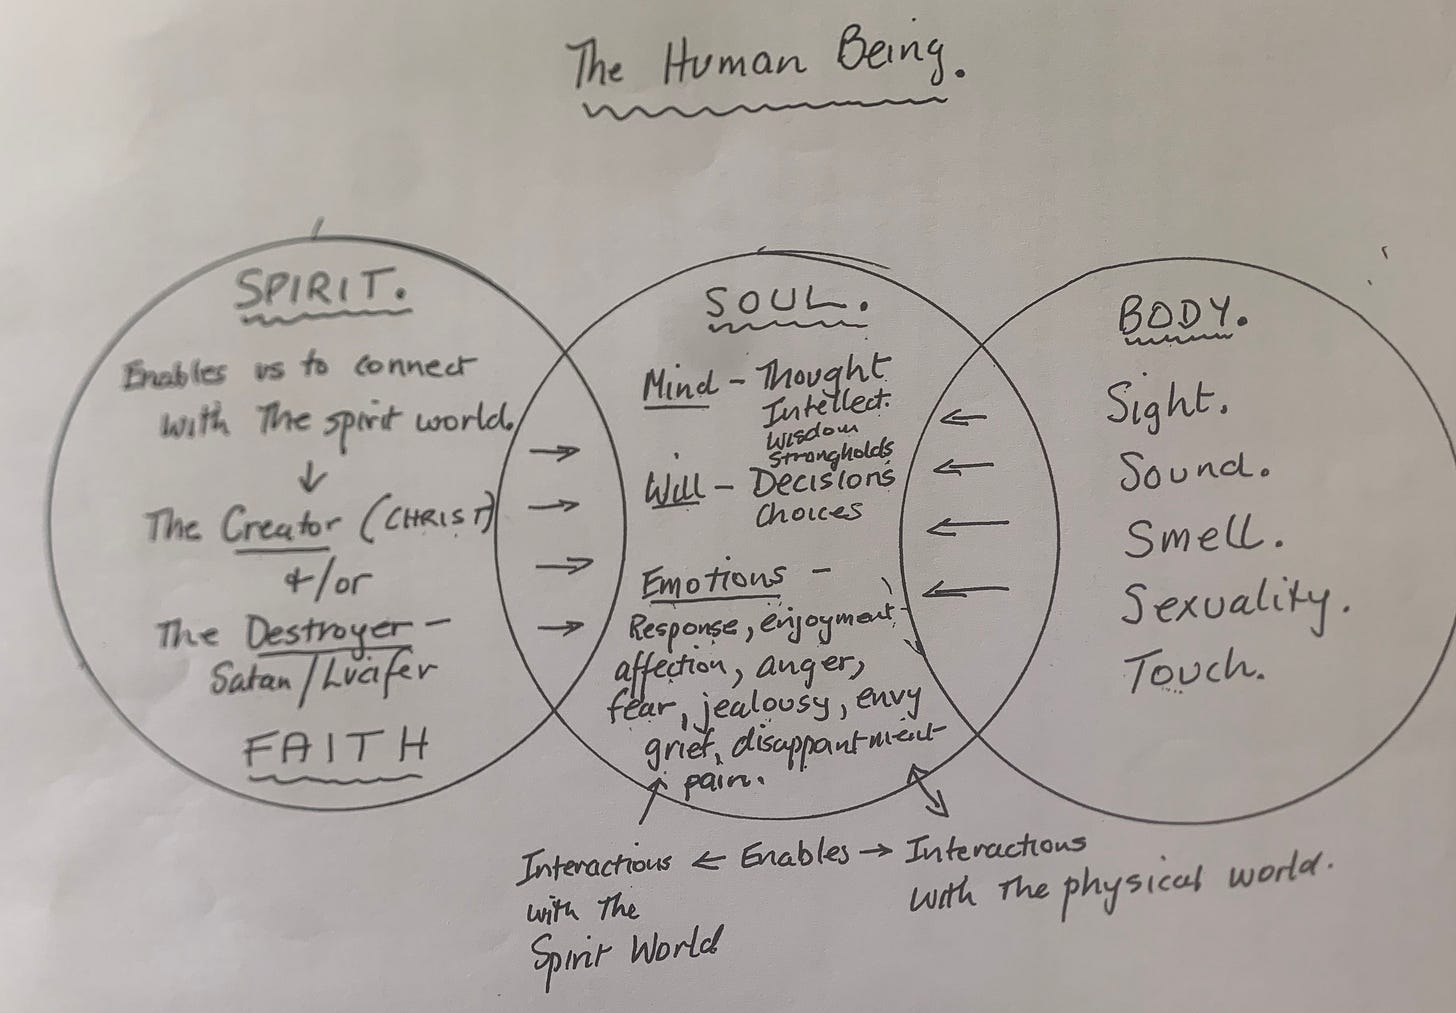 The Human Being.
SPIRIT.
Enables us to connect
with The spirit world.
↓
The Creator (CHRIST)
+/or
The Destroyer –
Satan/Lucifer
FAITH
SOUL.
Mind – Thought
Intellect.
Wisdom
Strongholds
Will – Decisions
Choices
Emotions –
Response, enjoyment
affection, anger,
fear, jealousy, envy
grief, disappantment
pain.
BODY.
Sight.
Sound.
Smell.
Sexuality.
Touch.
Interactions ← Enables → Interactions
with The
Spirit World
with The physical world.